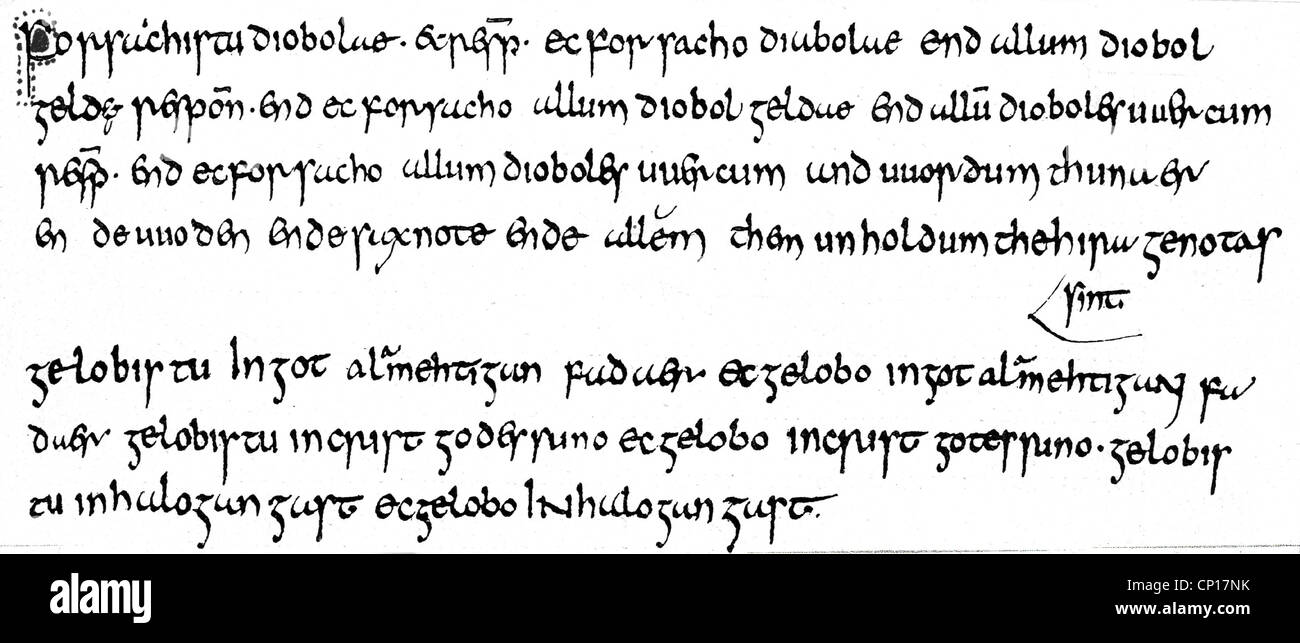 Forsachistu diobolae · & resp̄ · ec forsacho diabolae end allum diobol
geldę respon̄ · end ec forsacho allum diobolgeldae end allū dioboles uuercum
resp̄ · end ec forsacho allum dioboles uuercum and uuordum thunaer
ende uuoden ende saxnote ende allēm them unholdum the hira genotas
sint
gelobistu in got alamehtigan fadaer ec gelobo in got alamehtigan fa
daer gelobistu in crist godes suno ec gelobo in crist gotes suno · gelobis
tu in halogan gast ec gelobo in halogan gast .
alamy
Image ID: CP17NK
www.alamy.com